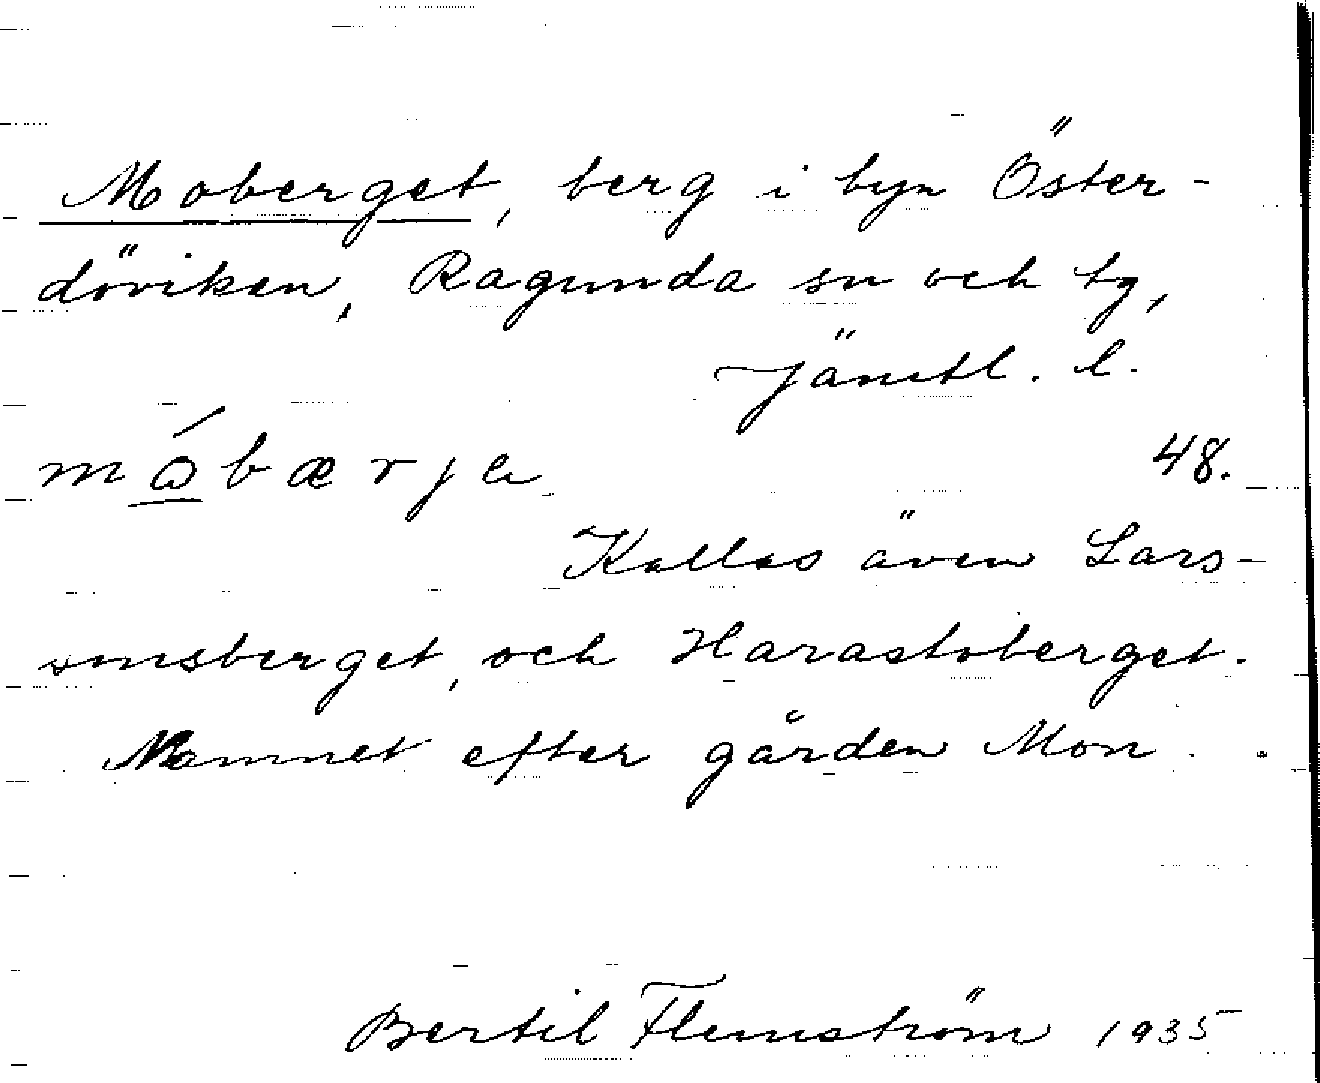 Moberget, berg i byn Öster-
döviken, Ragunda sn och tg,
Jämtl. l.
mώbærja 48.
Kallas även Lars-
onsberget, och Harastoberget.
Namnet efter gården Mon.
Bertil Flemström 1935